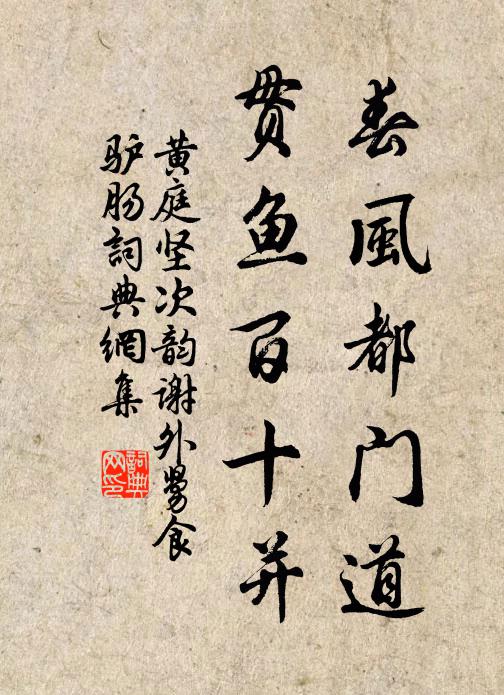 春風都门道
贯鱼百十并
黄庭坚次韵谢外舅食
驴肠詞典網集
詞典网印